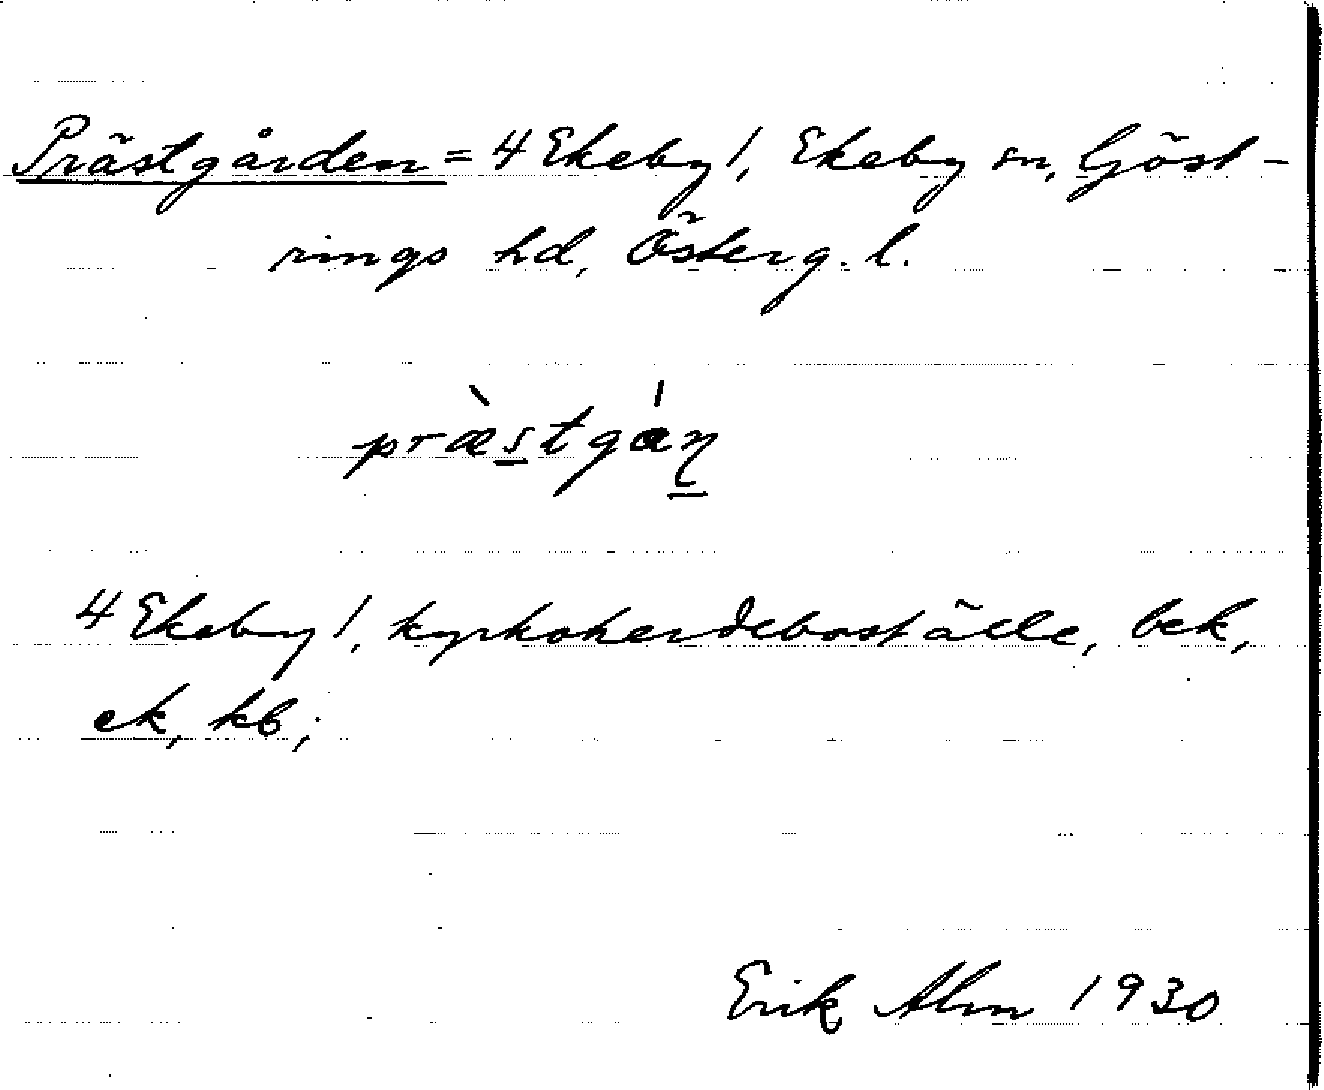 Prästgården = 4 Ekeby!, Ekeby sn, Göst-
rings hd, Österg. l.
præ̀stgáɳ
4 Ekeby!, kyrkoherdeboställe, bek,
ek, kb;
Erik Alm 1930